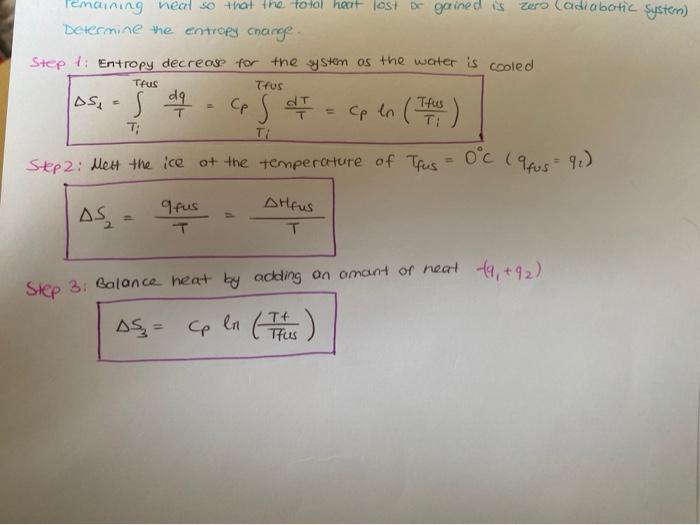 remaining heat so that the total heat lost or gained is zero (adiabatic system)
Determine the entropy change.
Step 1: Entropy decrease for the system as the water is cooled
ΔS₁ = ∫_{Ti}^{Tfus} dq/T = Cp ∫_{Ti}^{Tfus} dT/T = Cp ln (Tfus/Ti)
Step 2: Melt the ice at the temperature of Tfus = 0°C (qfus = q₂)
ΔS₂ = qfus/T = ΔHfus/T
Step 3: Balance heat by adding an amant of heat -(q₁+q₂)
ΔS₃ = Cp ln (Tf/Tfus)